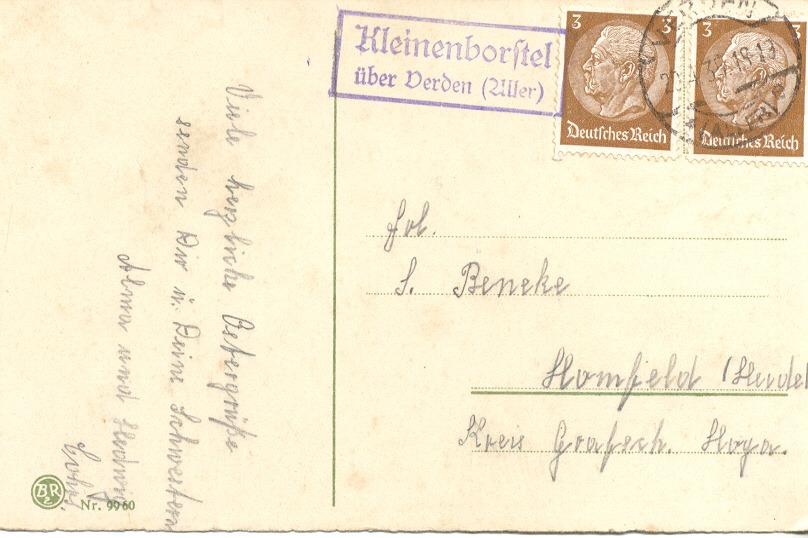 Kleinenborstel
über Verden (Aller)
3
Deutsches Reich
3
3
Deutsches Reich
VERDEN
Viele herzliche Ostergrüße
senden Dir u. Deine Schwestern
Alma und Hedwig
Frl.
S. Beneke
Homfeld
Kreis Grafsch. Hoya.
BR
2
Nr. 9960